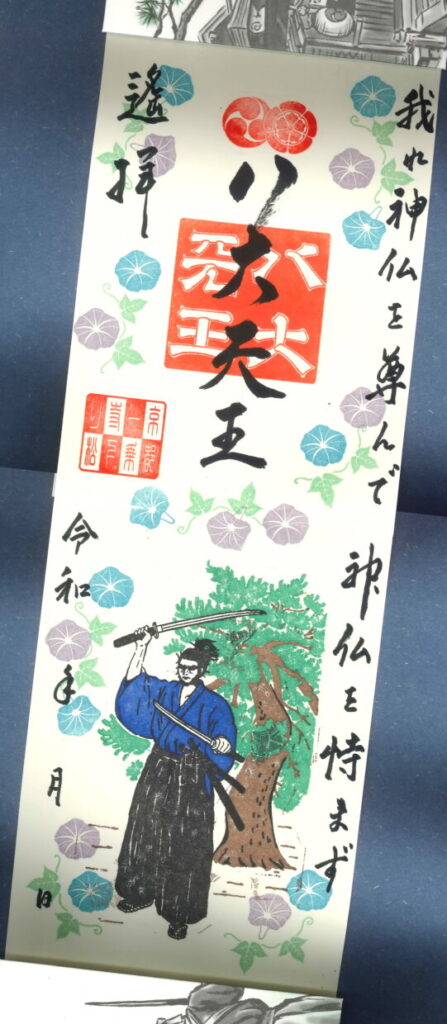 我れ神仏を尊んで
神仏を恃まず
八大天王
八大
天王
遙拝
令和 年 月 日